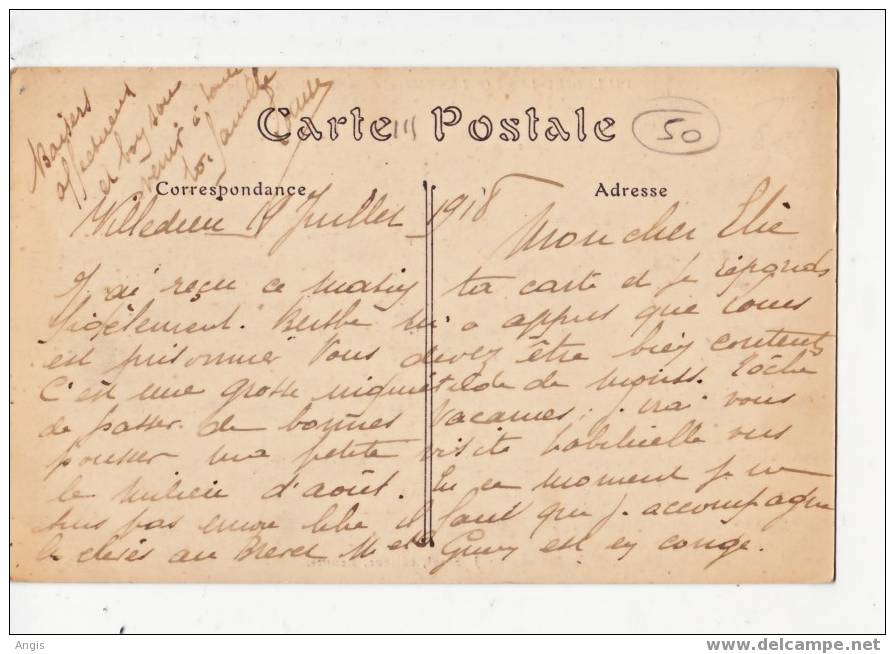 Baisers
affectueux
et bon sou
venir à toute
ta famille
Carte Postale
50
Correspondance
Adresse
Villedieu Juillet 1918
Mon cher Elie
J'ai reçu ce matin ta carte et je réponds
fidèlement. Berthe m'a appris que Louis
est prisonnier Vous devez être bien contents
C'est une grosse inquiétude de moins. Tâche
de passer de bonnes vacances, j'irai vous
pousser ma petite visite habituelle vers
le milieu d'août. En ce moment je ne
suis pas encore libre il faut que j'accompagne
les élèves au Brevet M et Guey est en congé.
Angis
www.delcampe.net